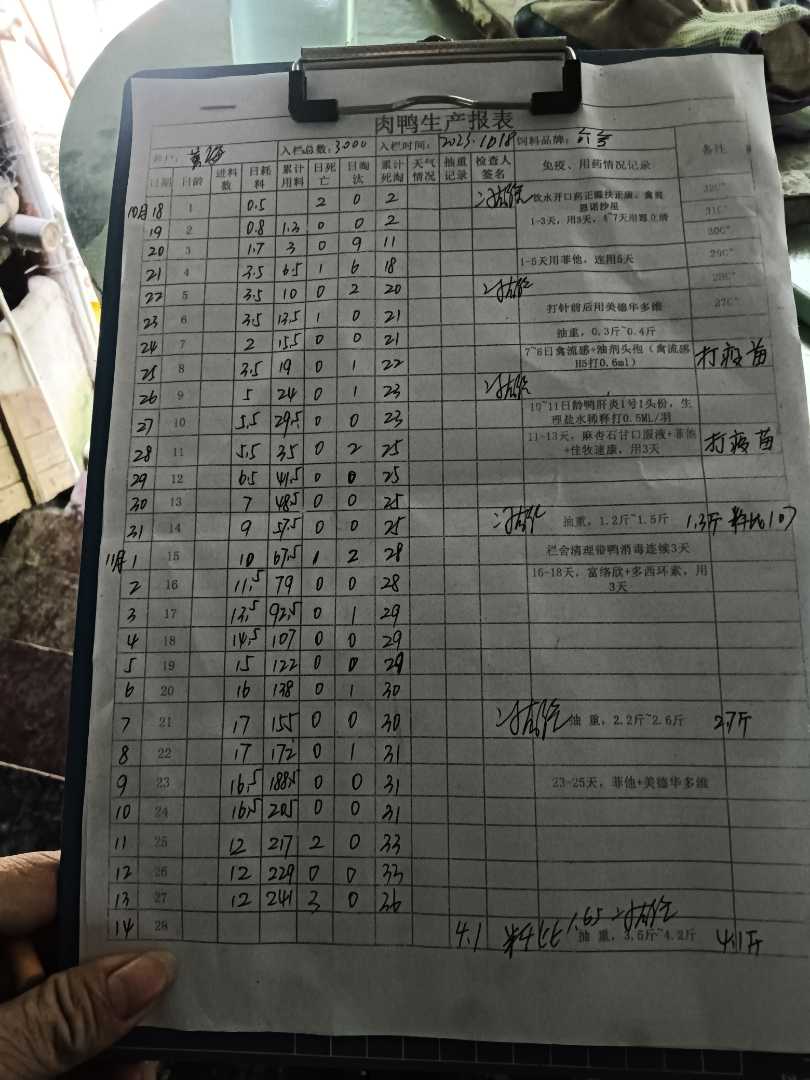 肉鸭生产报表
入栏总数: 3000 入栏时间: 2023.10.18 饲料品牌:
日期 日龄 进料数 日耗料 累计用料 日死亡 日淘汰 累计死淘 天气情况 抽重记录 检查人签名 免疫、用药情况记录 备注
10月18 1 0.5 2 0 2
1-3天,用3天,4~7天用 32C°
19 2 0.8 1.3 0 0 2 31C°
20 3 1.7 3 0 9 11 30C°
21 4 3.5 6.5 1 6 18 1-5天用菲他,连用5天 29C°
22 5 3.5 10 0 2 20 28C°
23 6 3.5 13.5 1 0 21 打针前后用美德华多维 27C°
24 7 2 15.5 0 0 21 抽重,0.3斤~0.4斤
25 8 3.5 19 0 1 22 禽流感+油剂头孢(禽流感H5打0.6ml) 打疫苗
26 9 5 24 0 1 23
27 10 5.5 29.5 0 0 23 10~11日龄鸭肝炎1号1头份,生理盐水稀释打0.5ML/羽
28 11 5.5 35 0 2 25 11-13天,麻杏石甘口服液+菲他+佳牧速康,用3天 打疫苗
29 12 6.5 41.5 0 0 25
30 13 7 48.5 0 0 25
31 14 9 57.5 0 0 25 抽重,1.2斤~1.5斤 1.3斤 料比1.07
11月1 15 10 67.5 2 28 栏舍清理带鸭消毒连续3天
2 16 11.5 79 0 0 28 16-18天,富络欣+多西环素,用3天
3 17 13.5 92.5 0 1 29
4 18 14.5 107 0 0 29
5 19 15 122 0 0 29
6 20 16 138 0 1 30
7 21 17 155 0 0 30 抽 重,2.2斤~2.6斤 2.7斤
8 22 17 172 0 1 31
9 23 16.5 188.5 0 0 31 23-25天,菲他+美德华多维
10 24 16.5 205 0 0 31
11 25 12 217 2 0 33
12 26 12 229 0 0 33
13 27 12 241 3 0 36
14 28 4.1 料比 1.65 抽 重,3.5斤~4.2斤 4.1斤